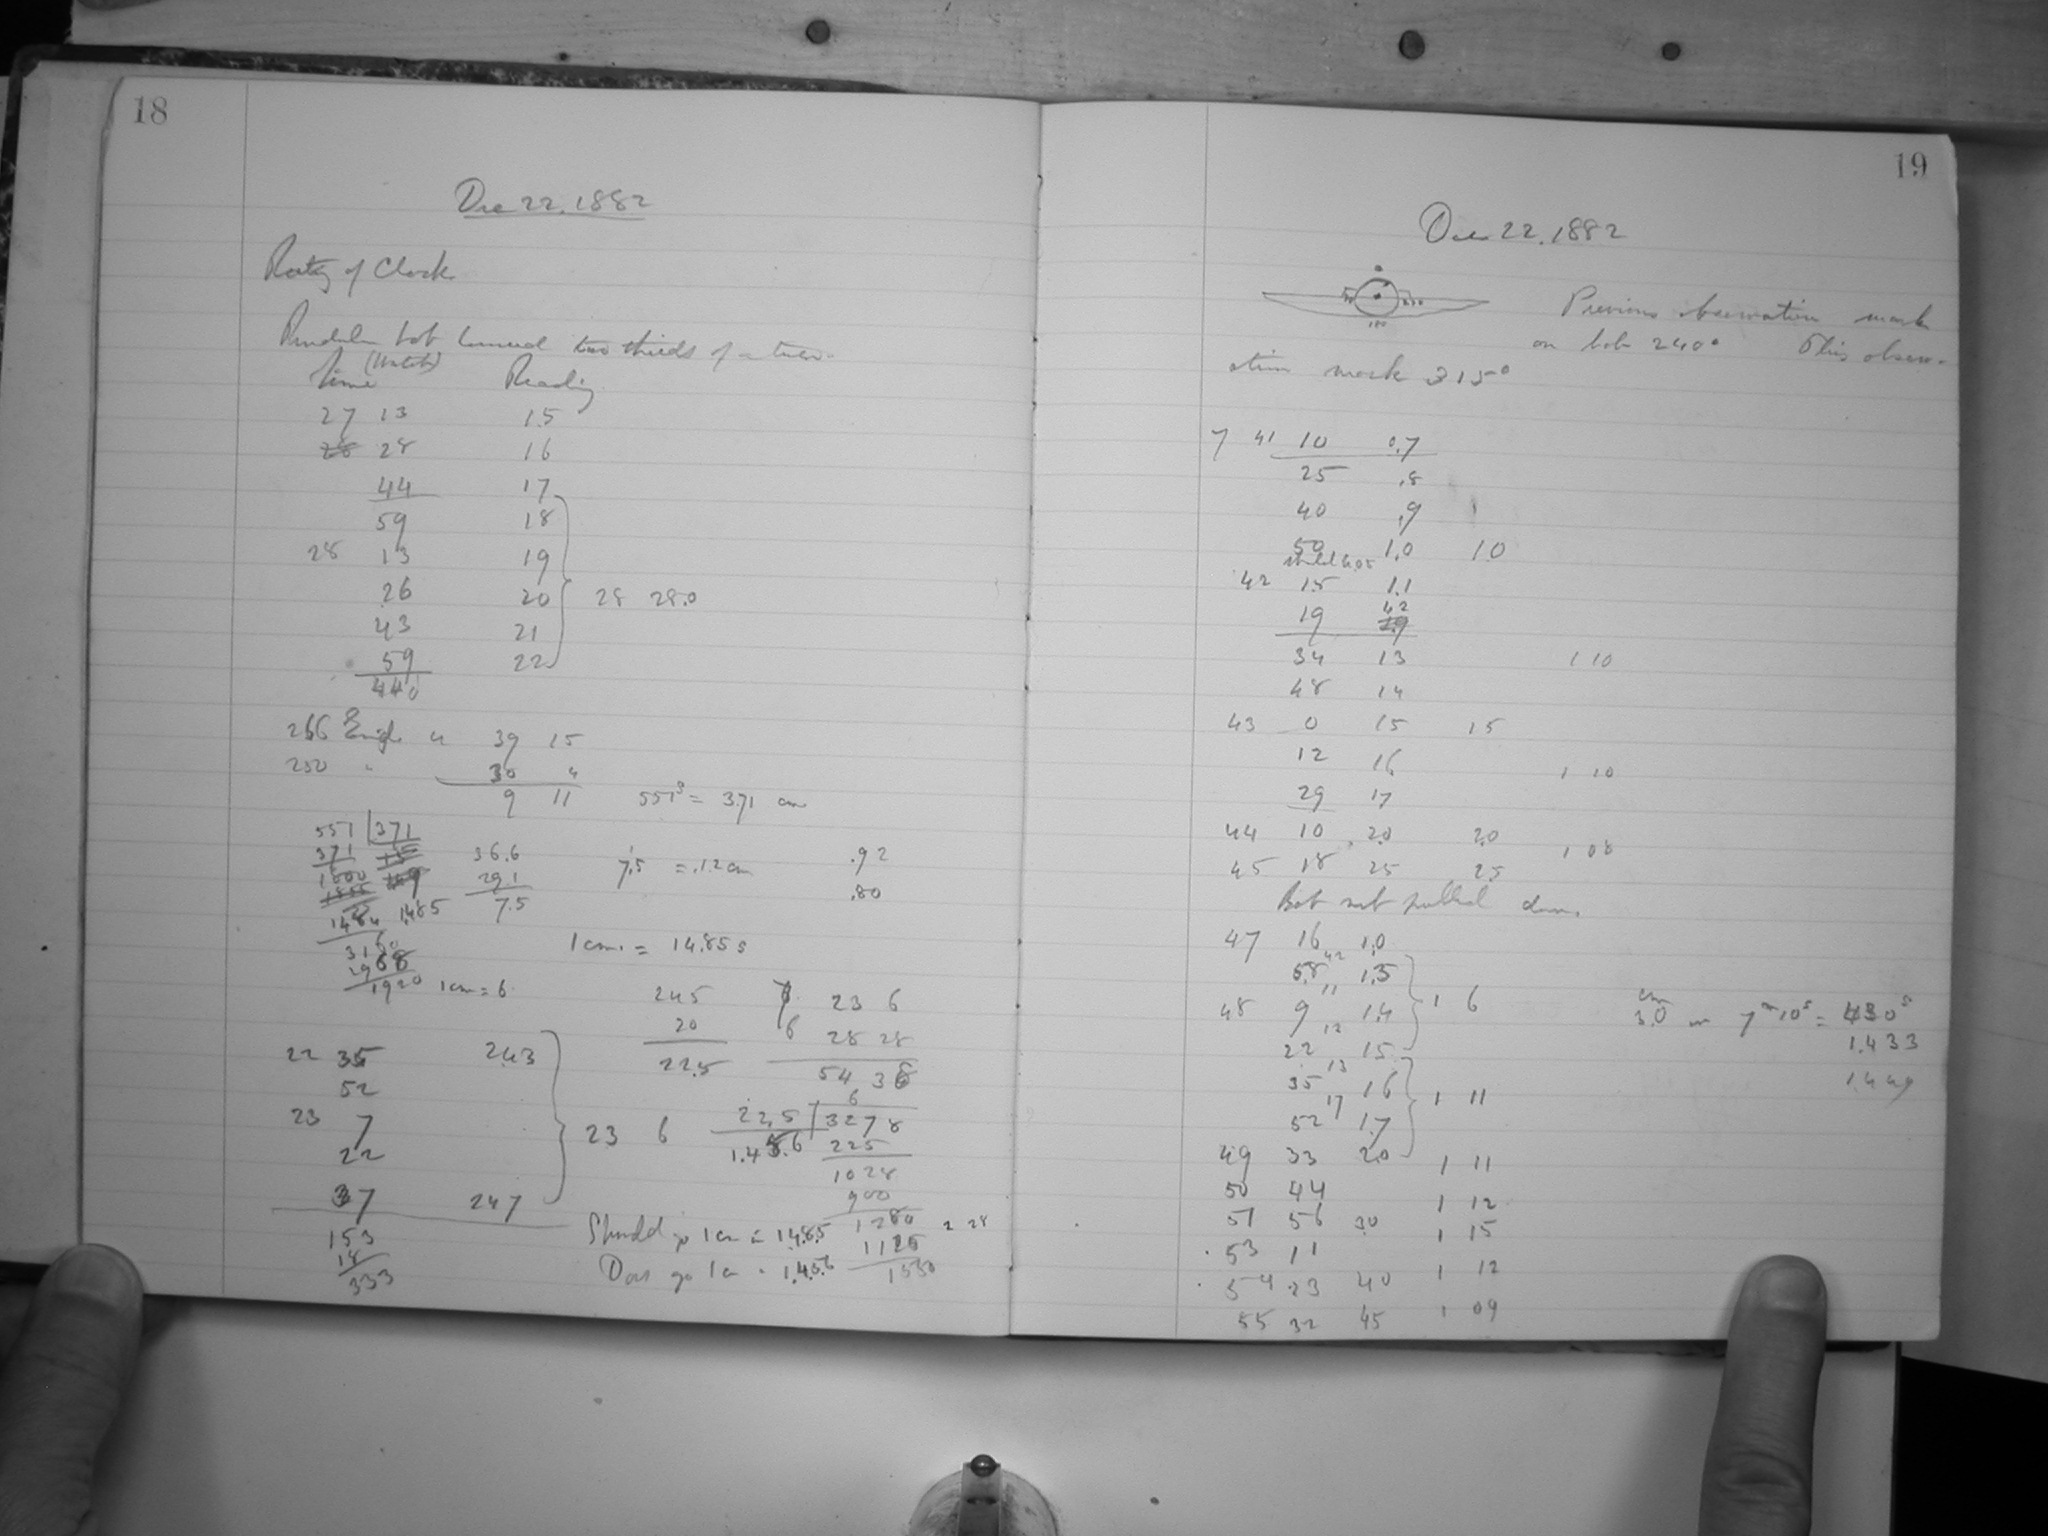 18
Dec 22. 1882
Rating of Clock
Pendulum bob turned two thirds of a turn.
Time (Watch) Reading
27 13 15
28 28 16
44 17
59 18
28 13 19
26 20 28 28.0
43 21
59 22
440
266 39 15
250 " 30 4
9 11 551s = 371 cm
551 371
371 36.6 7.5 = .12 cm .92
29.1 .80
1484 1485 7.5
1 cm = 14.85 s
2968
1920 1 cm = 6
245 23 6
20 6 28 28
22 35 243 225 54 38
52
23 7 23 6 22.5 3278
22 225
1028
37 247 900
153 Should go 1 cm = 1485 1280 2 28
18 1125
333 Does go 1 cm = 1,456 1530
19
Dec 22. 1882
180
Previous observation mark
on bob 240° This observ-
ation mark 315°
7 41 10 0.7
25 .8
40 .9
50 1.0 10
42 15 1.1
19 42
34 13 1 10
48 14
43 0 15 15
12 16 1 10
29 17
44 10 20 20
1 08
45 18 25 25
Bob not pulled down.
47 16 1.0
42
58 1.5
11
48 9 1.4 1 6
12
22 15
13
35 16 1 11
17
52 17
cm
3.0 in 7m 10s = 430s
1.433
1.449
49 33 20 1 11
50 44 1 12
51 56 30 1 15
53 11
54 23 40 1 12
55 32 45 1 09